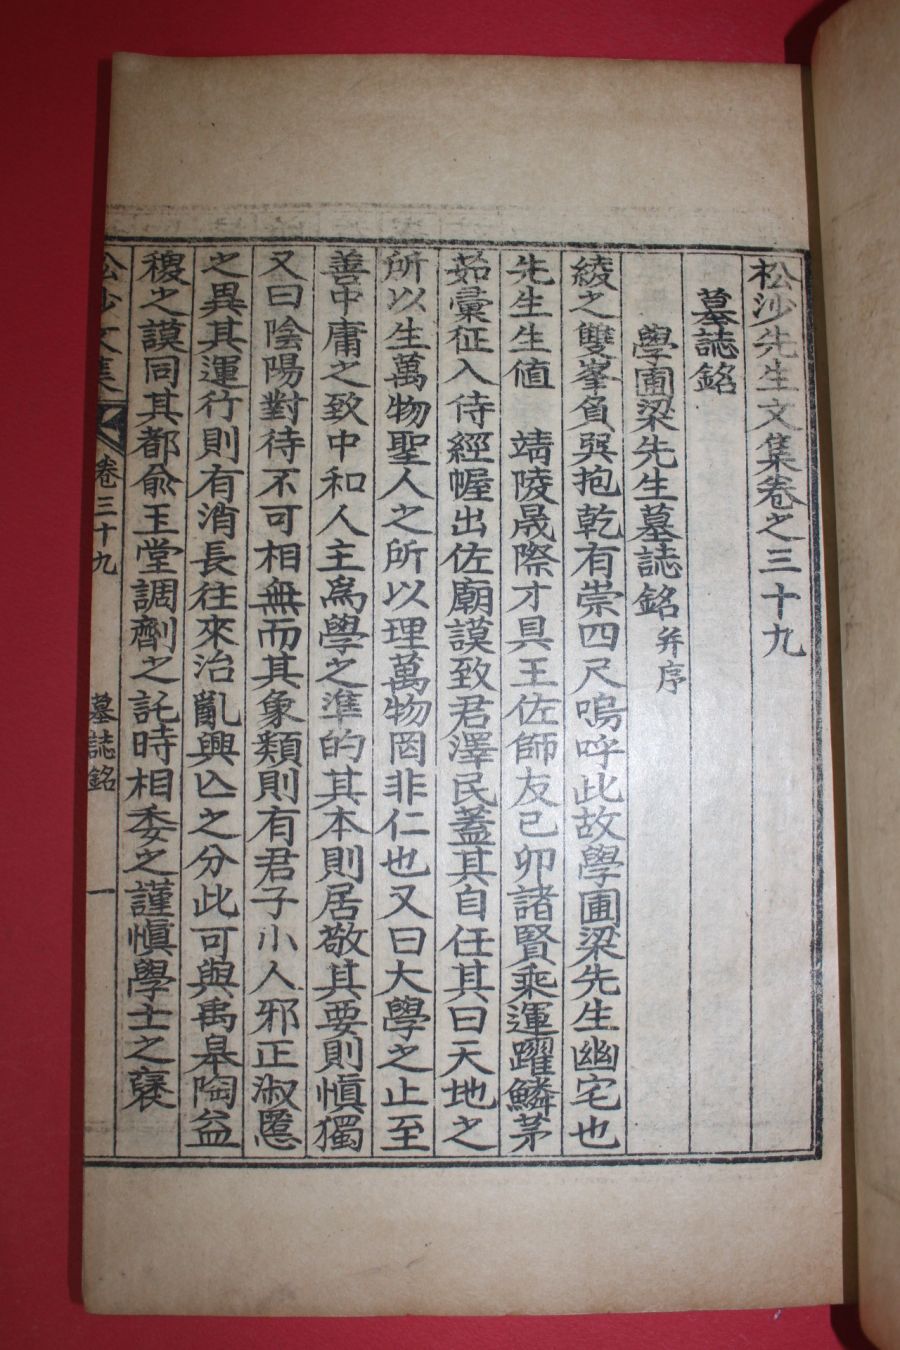 松沙先生文集卷之三十九
墓誌銘
學圃梁先生墓誌銘 幷序
綾之雙峯負巽抱乾有崇四尺嗚呼此故學圃梁先生幽宅也
先生生值 靖陵晟際才具王佐師友己卯諸賢乘運躍鱗茅
茹彙征入侍經幄出佐廟謨致君澤民蓋其自任其曰天地之
所以生萬物聖人之所以理萬物罔非仁也又曰大學之止至
善中庸之致中和人主爲學之準的其本則居敬其要則愼獨
又曰陰陽對待不可相無而其象類則有君子小人邪正淑慝
之異其運行則有消長往來治亂興亾之分此可與禹皐陶益
稷之謨同其都兪玉堂調劑之託時相委之謹愼學士之襃
松沙文集 卷三十九 墓誌銘 一